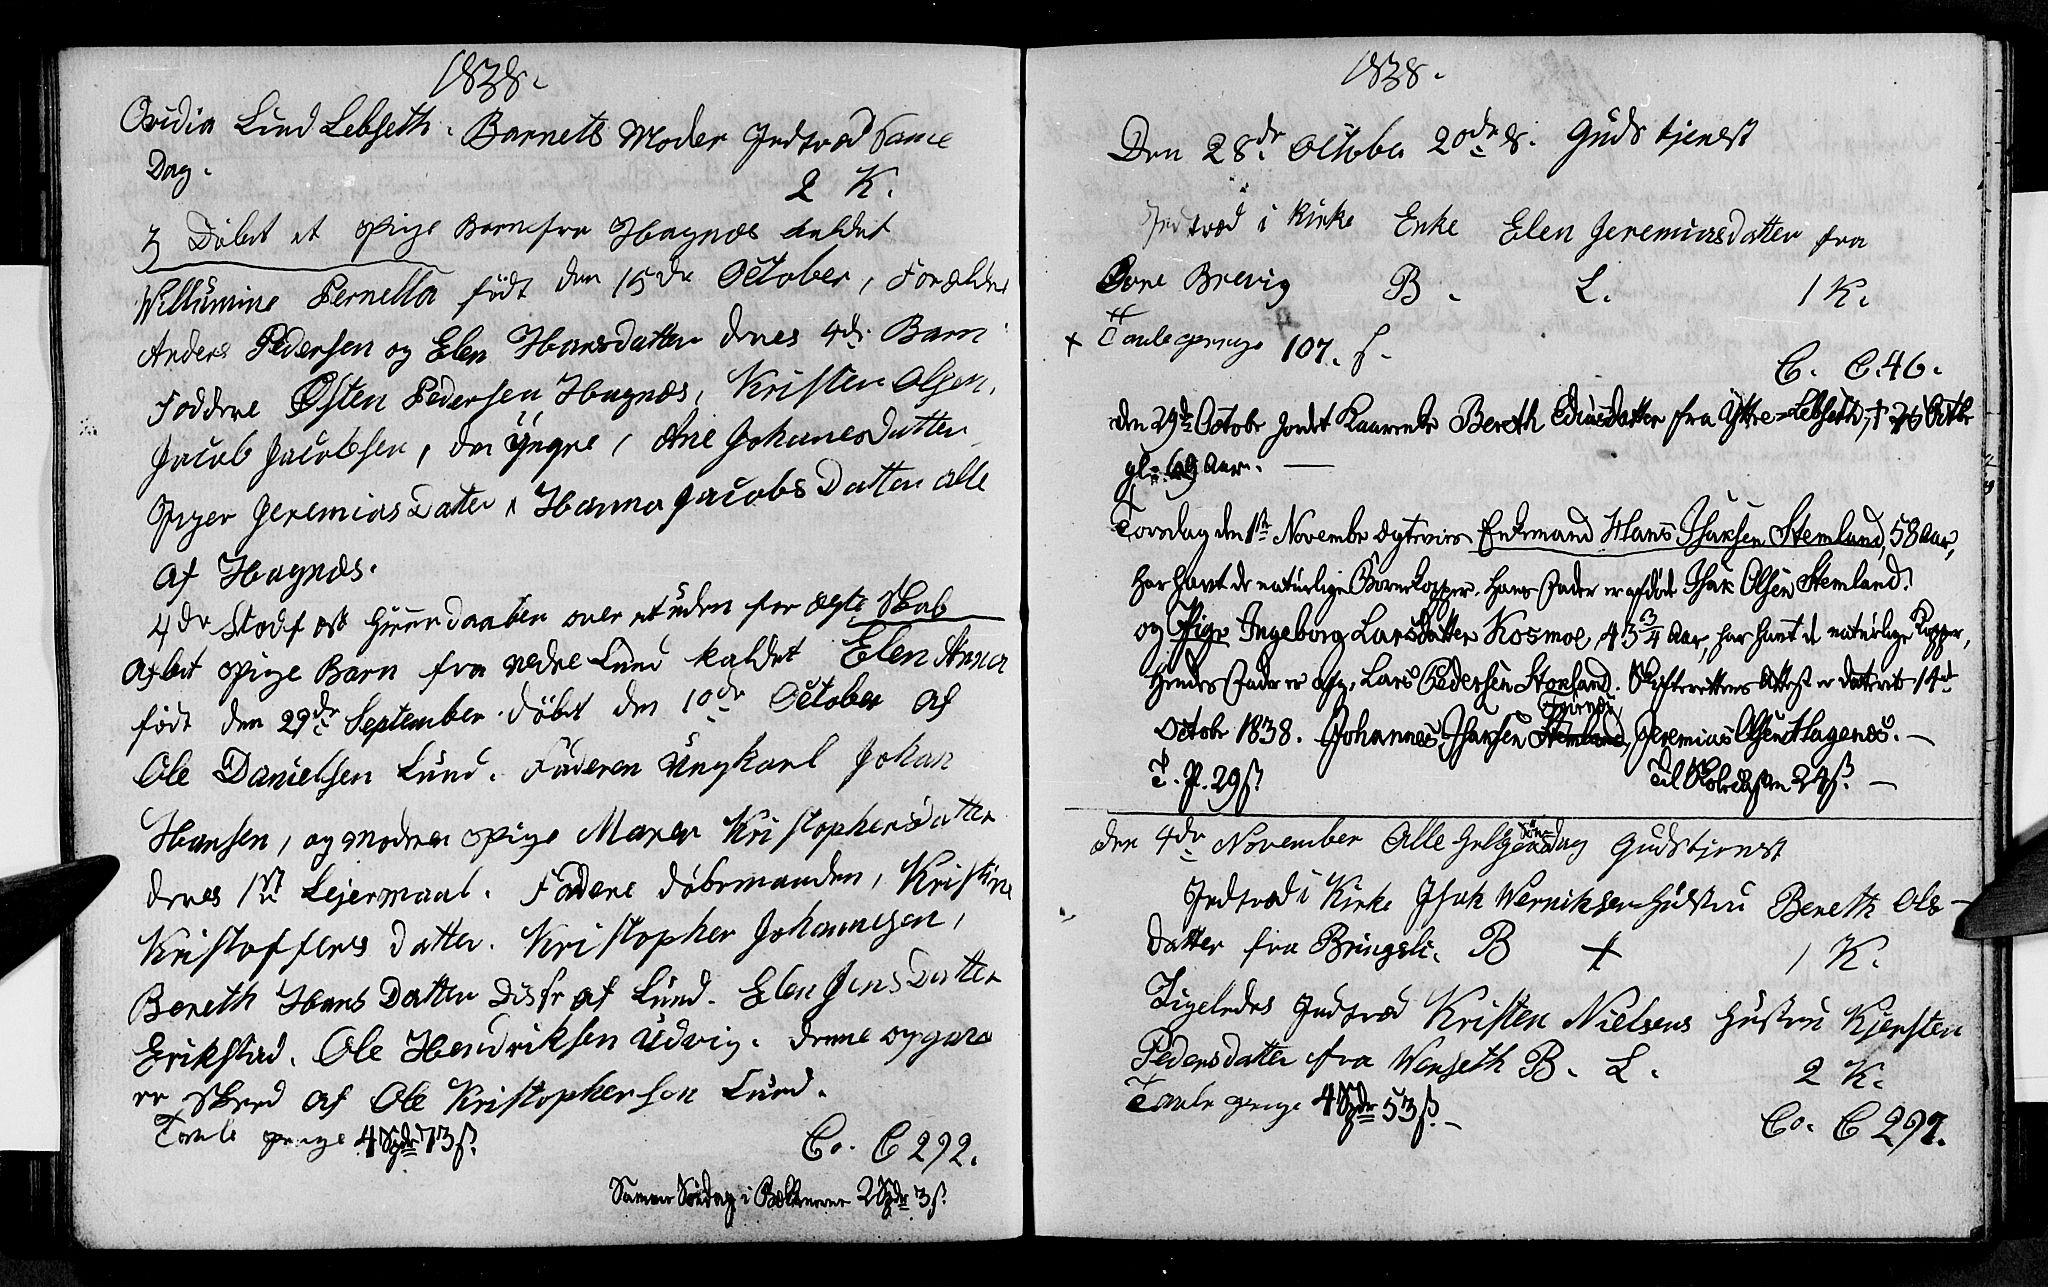 1838.
Ovidia Lind Lebseth. Barnets Moder Indtræd Samme
Dag.
2 K.
3 Döbet et Pige Barn fra Hagnæs kaldet
Willumine Pernella födt den 15de October, Forældre
Anders Pedersen og Elen Hansdatter deres 4de Barn
Faddere Østen Pedersen Hagnæs, Kristen Olsen,
Jacob Jacobsen, den Yngre, Ane Johanesdatter
Piger Jeremias Datter, Hanna Jacobs Datter alle
af Hagnæs.
4de Stadfæst Hiemdaaben over et uden for ægte Skab
Aflet Pige Barn fra Nedre Lund kaldet Elen Anna
födt den 29de September döbet den 10de October af
Ole Danielsen Lund. Faderen Ungkarl Johan
Hansen, og Moderen Pige Maren Kristophersdatter
deres 1ste Lejermaal. Faddere döbemanden, Kristina
Kristoffers datter. Kristopher Johannesen,
Bereth Hans Datter Disse af Lund. Elen Jens Datter
Erikstad. Ole Hendriksen Udvig. denne opgave
er Skeed af Ole Kristophersen Lund.
Tavle penge 4 Spdr 73 s.
Co. C 292.
Samme Söndag i Bækkenerne 2 Spdr 3 s.
1838.
Den 28de October 20de S. Guds tjenest
Indtræd i Kirke Enke Elen Jeremiasdatter fra
Brevig B. L. 1 K.
+ Tavlepenge 107. s.
C. C. 46.
Den 29de Octobr jordet Kaarenke Bereth datter fra Ytre-Lebseth, † Octbr
gl. 69 Aar.
Torsdag den 1ste Novembr ægteviet Enkemand Hans Isaksen Stemland, 58 Aar,
har havt de natürlige Börnekopper. Hans Fader er afdöd Isak Olsen Stemland.
og Pige Ingeborg Larsdatter Kosmoe, 43 3/4 Aar, har havt de natürlige Kopper,
Hendes Fader er Lars Pedersen Storland. Skifterettens Attest er dateret 14de
Octobr 1838. Johannes Isaksen Stemland, Jeremias Olsen Hagenæs.
T. P. 29 s. Til Skolekassen 24 s.
den 4de November Alle Helgens Söndag Gudstjenest
Indtræd i Kirke Isak Werniksen Hustru Bereth Ols-
datter fra Bringsli. B + 1 K.
Ligeledes Indtræd Kristen Nielsens Hustru Kjersten
Pedersdatter fra Wenseth B. L. 2 K.
Tavle penge 4 Spdr 53 s.
Co. C 297.